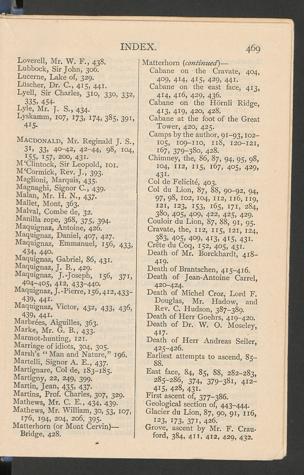 INDEX. 469
Loverell, Mr. W. F., 438.
Lubbock, Sir John, 306.
Lucerne, Lake of, 329.
Lüscher, Dr. C., 415, 441.
Lyell, Sir Charles, 310, 330, 332,
335, 454.
Lyle, Mr. J. S., 434.
Lyskamm, 107, 173, 174, 385, 391,
415.
MACDONALD, Mr. Reginald J. S.,
31, 33, 40-42, 42-44, 98, 104,
155, 157, 200, 431.
M'Clintock, Sir Leopold, 101.
M'Cormick, Rev. J., 393.
Maglioni, Marquis, 435.
Magnaghi, Signor C., 439.
Malan, Mr. H. N., 437.
Mallet, Mont, 363.
Malval, Combe de, 32.
Manilla rope, 368, 375, 394.
Maquignaz, Antoine, 426.
Maquignaz, Daniel, 407, 427.
Maquignaz, Emmanuel, 156, 433,
434, 440.
Maquignaz, Gabriel, 86, 431.
Maquignaz, J. B., 429.
Maquignaz, J.-Joseph, 156, 371,
404-405, 412, 433-440.
Maquignaz, J.-Pierre, 156, 412, 433-
439, 441.
Maquignaz, Victor, 432, 433, 436,
439, 441.
Marbrées, Aiguilles, 363.
Marke, Mr. G. B., 433.
Marmot-hunting, 121.
Marriage of idiots, 304, 305.
Marsh's "Man and Nature," 196.
Martelli, Signor A. E., 437.
Martignare, Col de, 183-185.
Martigny, 22, 249, 399.
Martin, Jean, 435, 437.
Martins, Prof. Charles, 307, 329.
Mathews, Mr. C. E., 434, 439.
Mathews, Mr. William, 30, 53, 107,
176, 194, 204, 206, 395.
Matterhorn (or Mont Cervin)—
Bridge, 428.
Matterhorn (continued)—
Cabane on the Cravate, 404,
409, 414, 415, 429, 441.
Cabane on the east face, 413,
414, 416, 429, 436.
Cabane on the Hörnli Ridge,
413, 419, 420, 428.
Cabane at the foot of the Great
Tower, 420, 425.
Camps by the author, 91-93, 102-
105, 109-110, 118, 120-121,
167, 379-380, 428.
Chimney, the, 86, 87, 94, 95, 98,
104, 112, 115, 167, 405, 429,
431.
Col de Felicité, 403.
Col du Lion, 87, 88, 90-92, 94,
97, 98, 102, 104, 112, 116, 119,
121, 123, 153, 165, 171, 284,
380, 405, 409, 422, 425, 429.
Couloir du Lion, 87, 88, 91, 97.
Cravate, the, 112, 115, 121, 124,
383, 405, 409, 413, 415, 431.
Crête du Coq, 152, 405, 431.
Death of Mr. Borckhardt, 418-
419.
Death of Brantschen, 415-416.
Death of Jean-Antoine Carrel,
420-424.
Death of Michel Croz, Lord F.
Douglas, Mr. Hadow, and
Rev. C. Hudson, 387-389.
Death of Herr Goehrs, 419-420.
Death of Dr. W. O. Moseley,
417.
Death of Herr Andreas Seiler,
425-426.
Earliest attempts to ascend, 85-
88.
East face, 84, 85, 88, 282-283,
285-286, 374, 379-381, 412-
415, 428, 431.
First ascent of, 377-386.
Geological section of, 443-444.
Glacier du Lion, 87, 90, 91, 116,
123, 173, 371, 426.
Grove, ascent by Mr. F. Crau-
ford, 384, 411, 412, 429, 432.